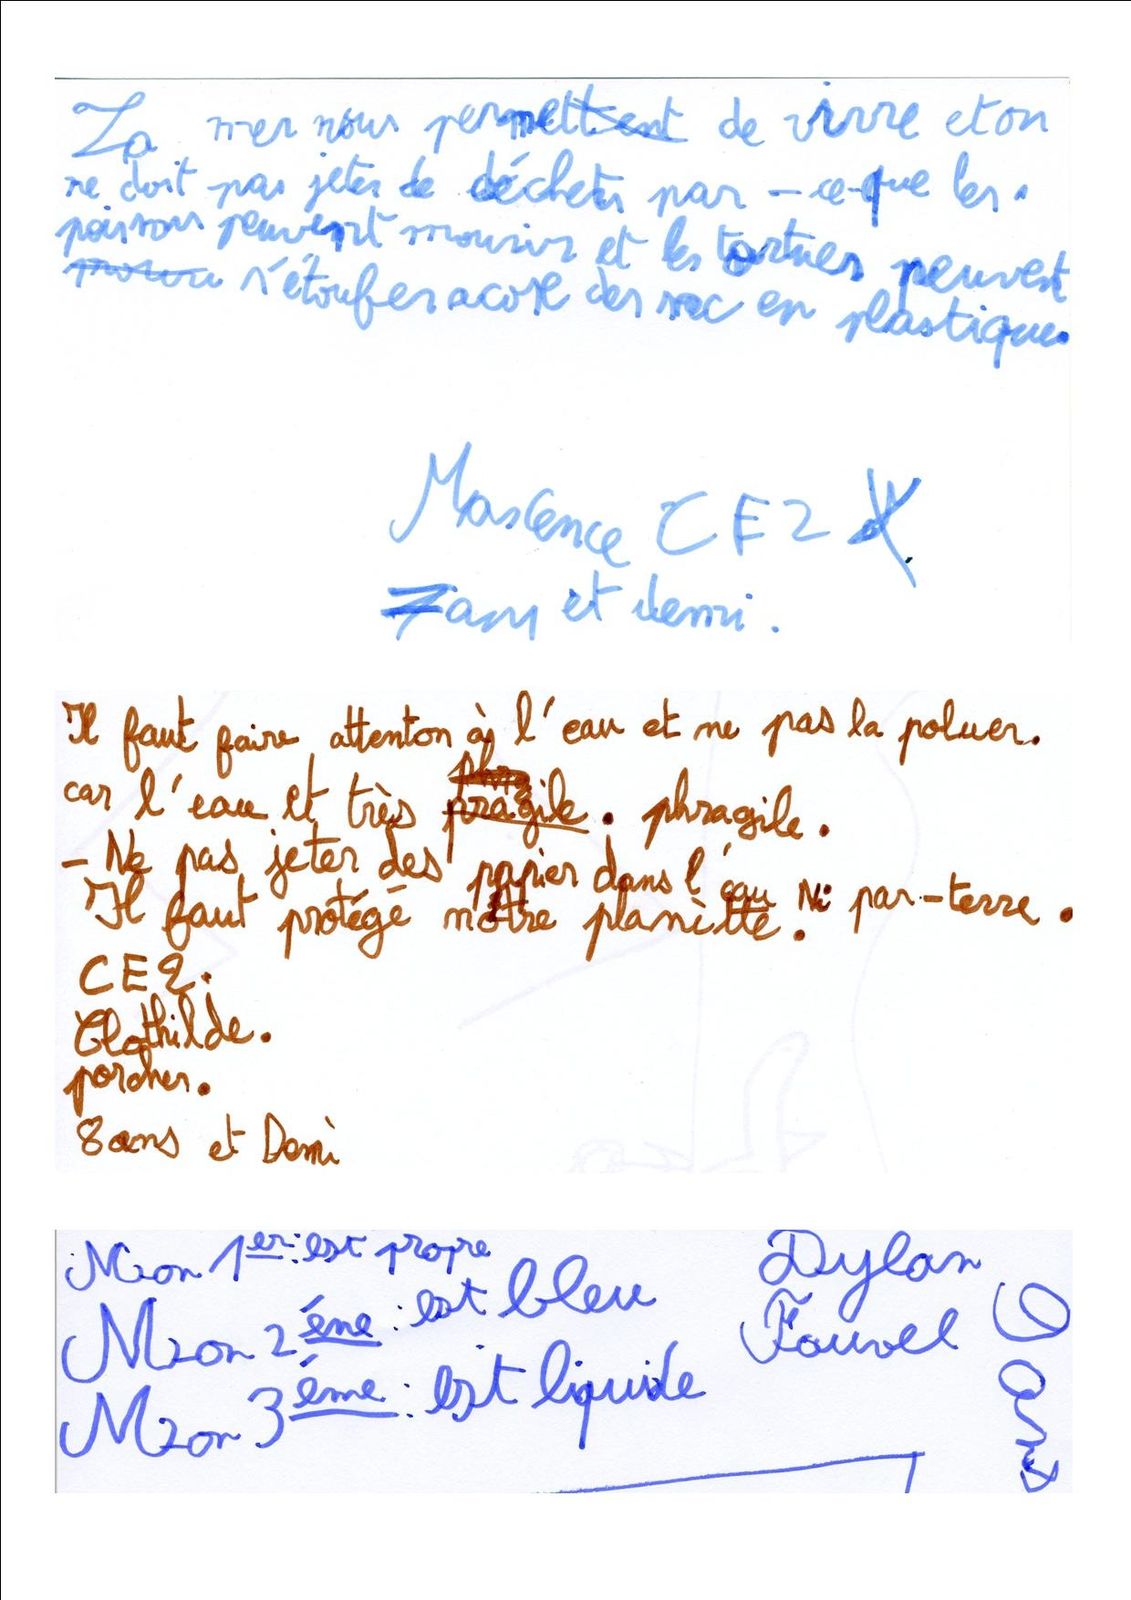 La mer nous permettent de vivre et on
ne doit pas jeter de déchets par-ce-que les
poissons peuvent mourir et les tortues peuvent
s'étoufer a cose des sac en plastique.
Maxence CE2
7 ans et demi.
Il faut faire attenton à l'eau et ne pas la poluer.
car l'eau et très fragile. phragile.
- Ne pas jeter des papier dans l'eau Ni par-terre.
Il faut protégé nôtre planètte.
CE2.
Clothilde.
porcher.
8 ans et Demi
Mon 1er: est propre
Mon 2ème: est bleu
Mon 3ème: est liquide
Dylan
Fauvel